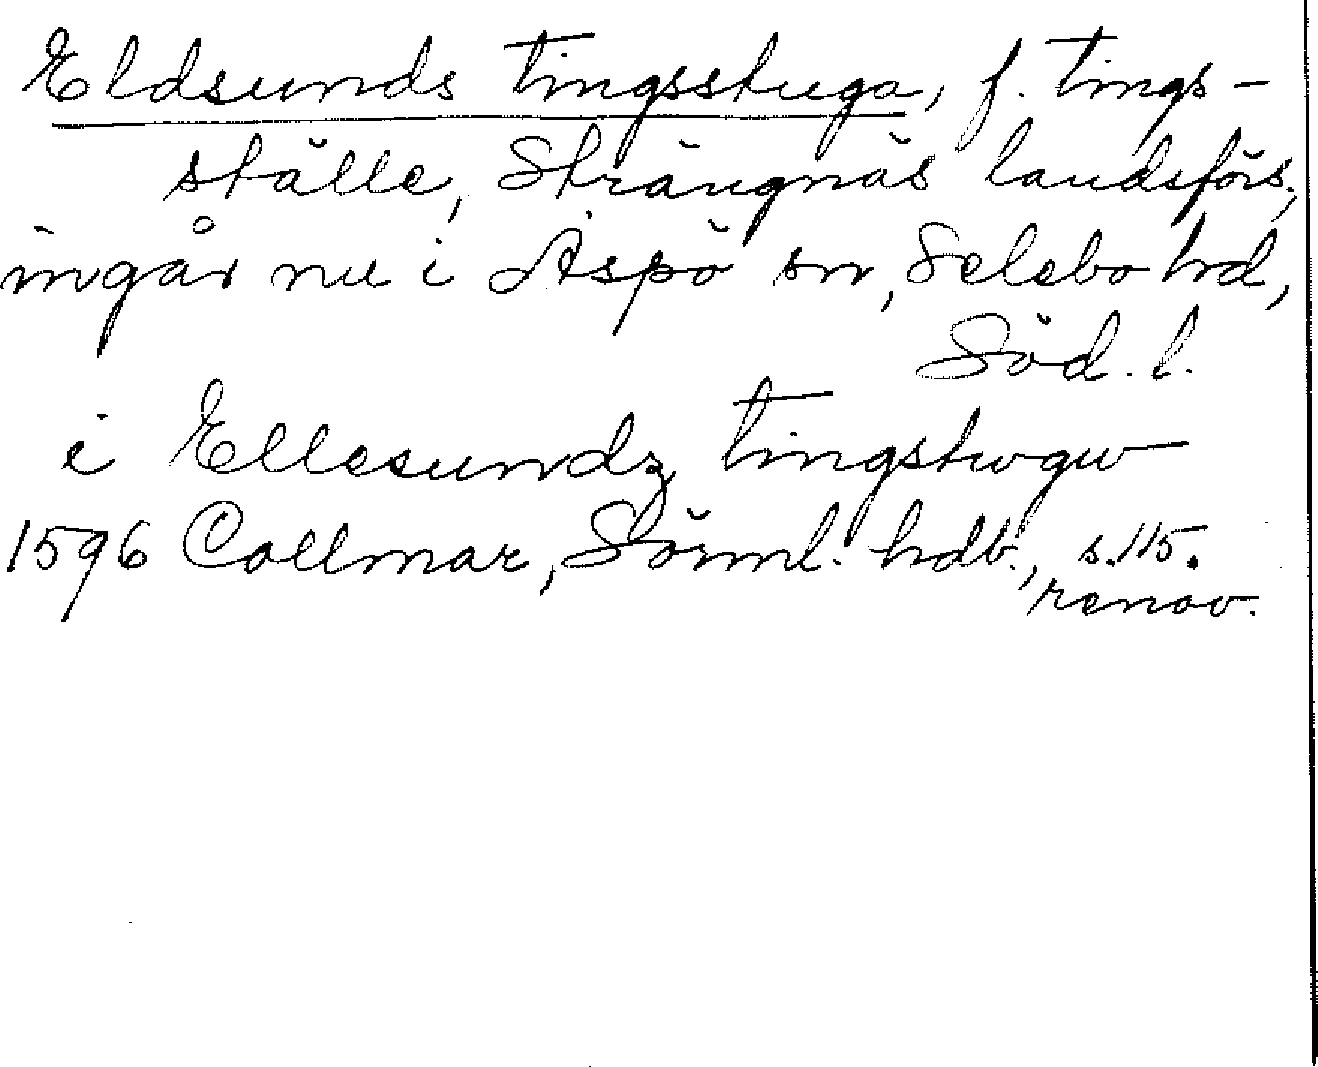 Eldsunds tingsstuga, f. tings-
ställe, Strängnäs landsförs.,
ingår nu i Aspö sn, Selebo hd,
Söd. l.
i Ellesundz tingstwgw
1596 Collmar, Sörml. hdb., s. 115.
renov.